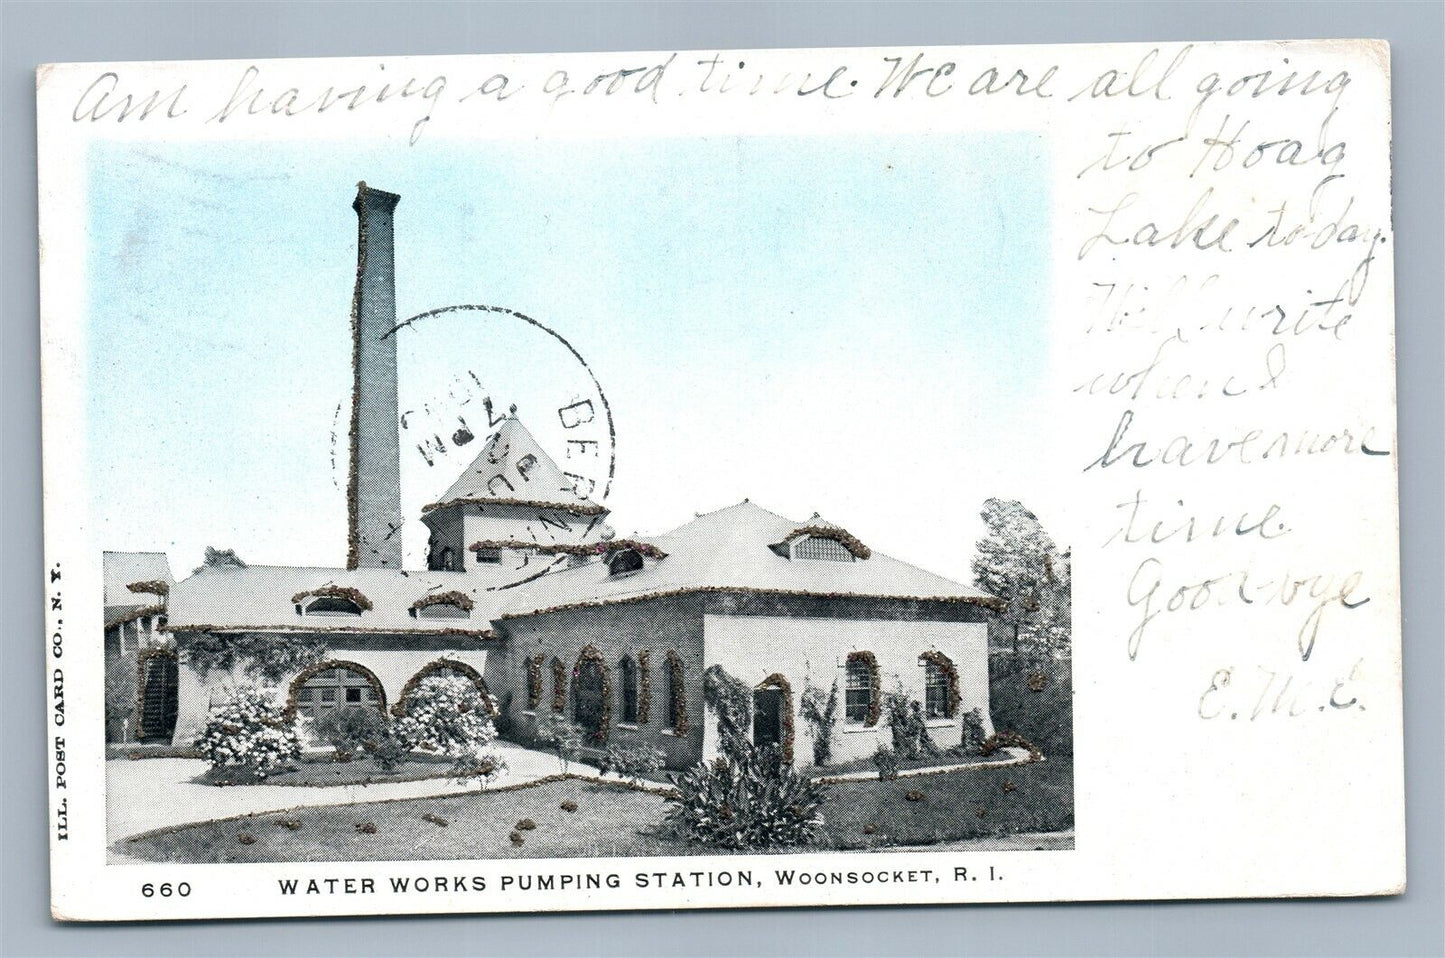 Am having a good time. We are all going
to Hoag
Lake to-day.
Will write
when I
have more
time.
Good-bye
E.M.E.
BER
7 PM
ILL. POST CARD CO., N. Y.
660 WATER WORKS PUMPING STATION, WOONSOCKET, R. I.